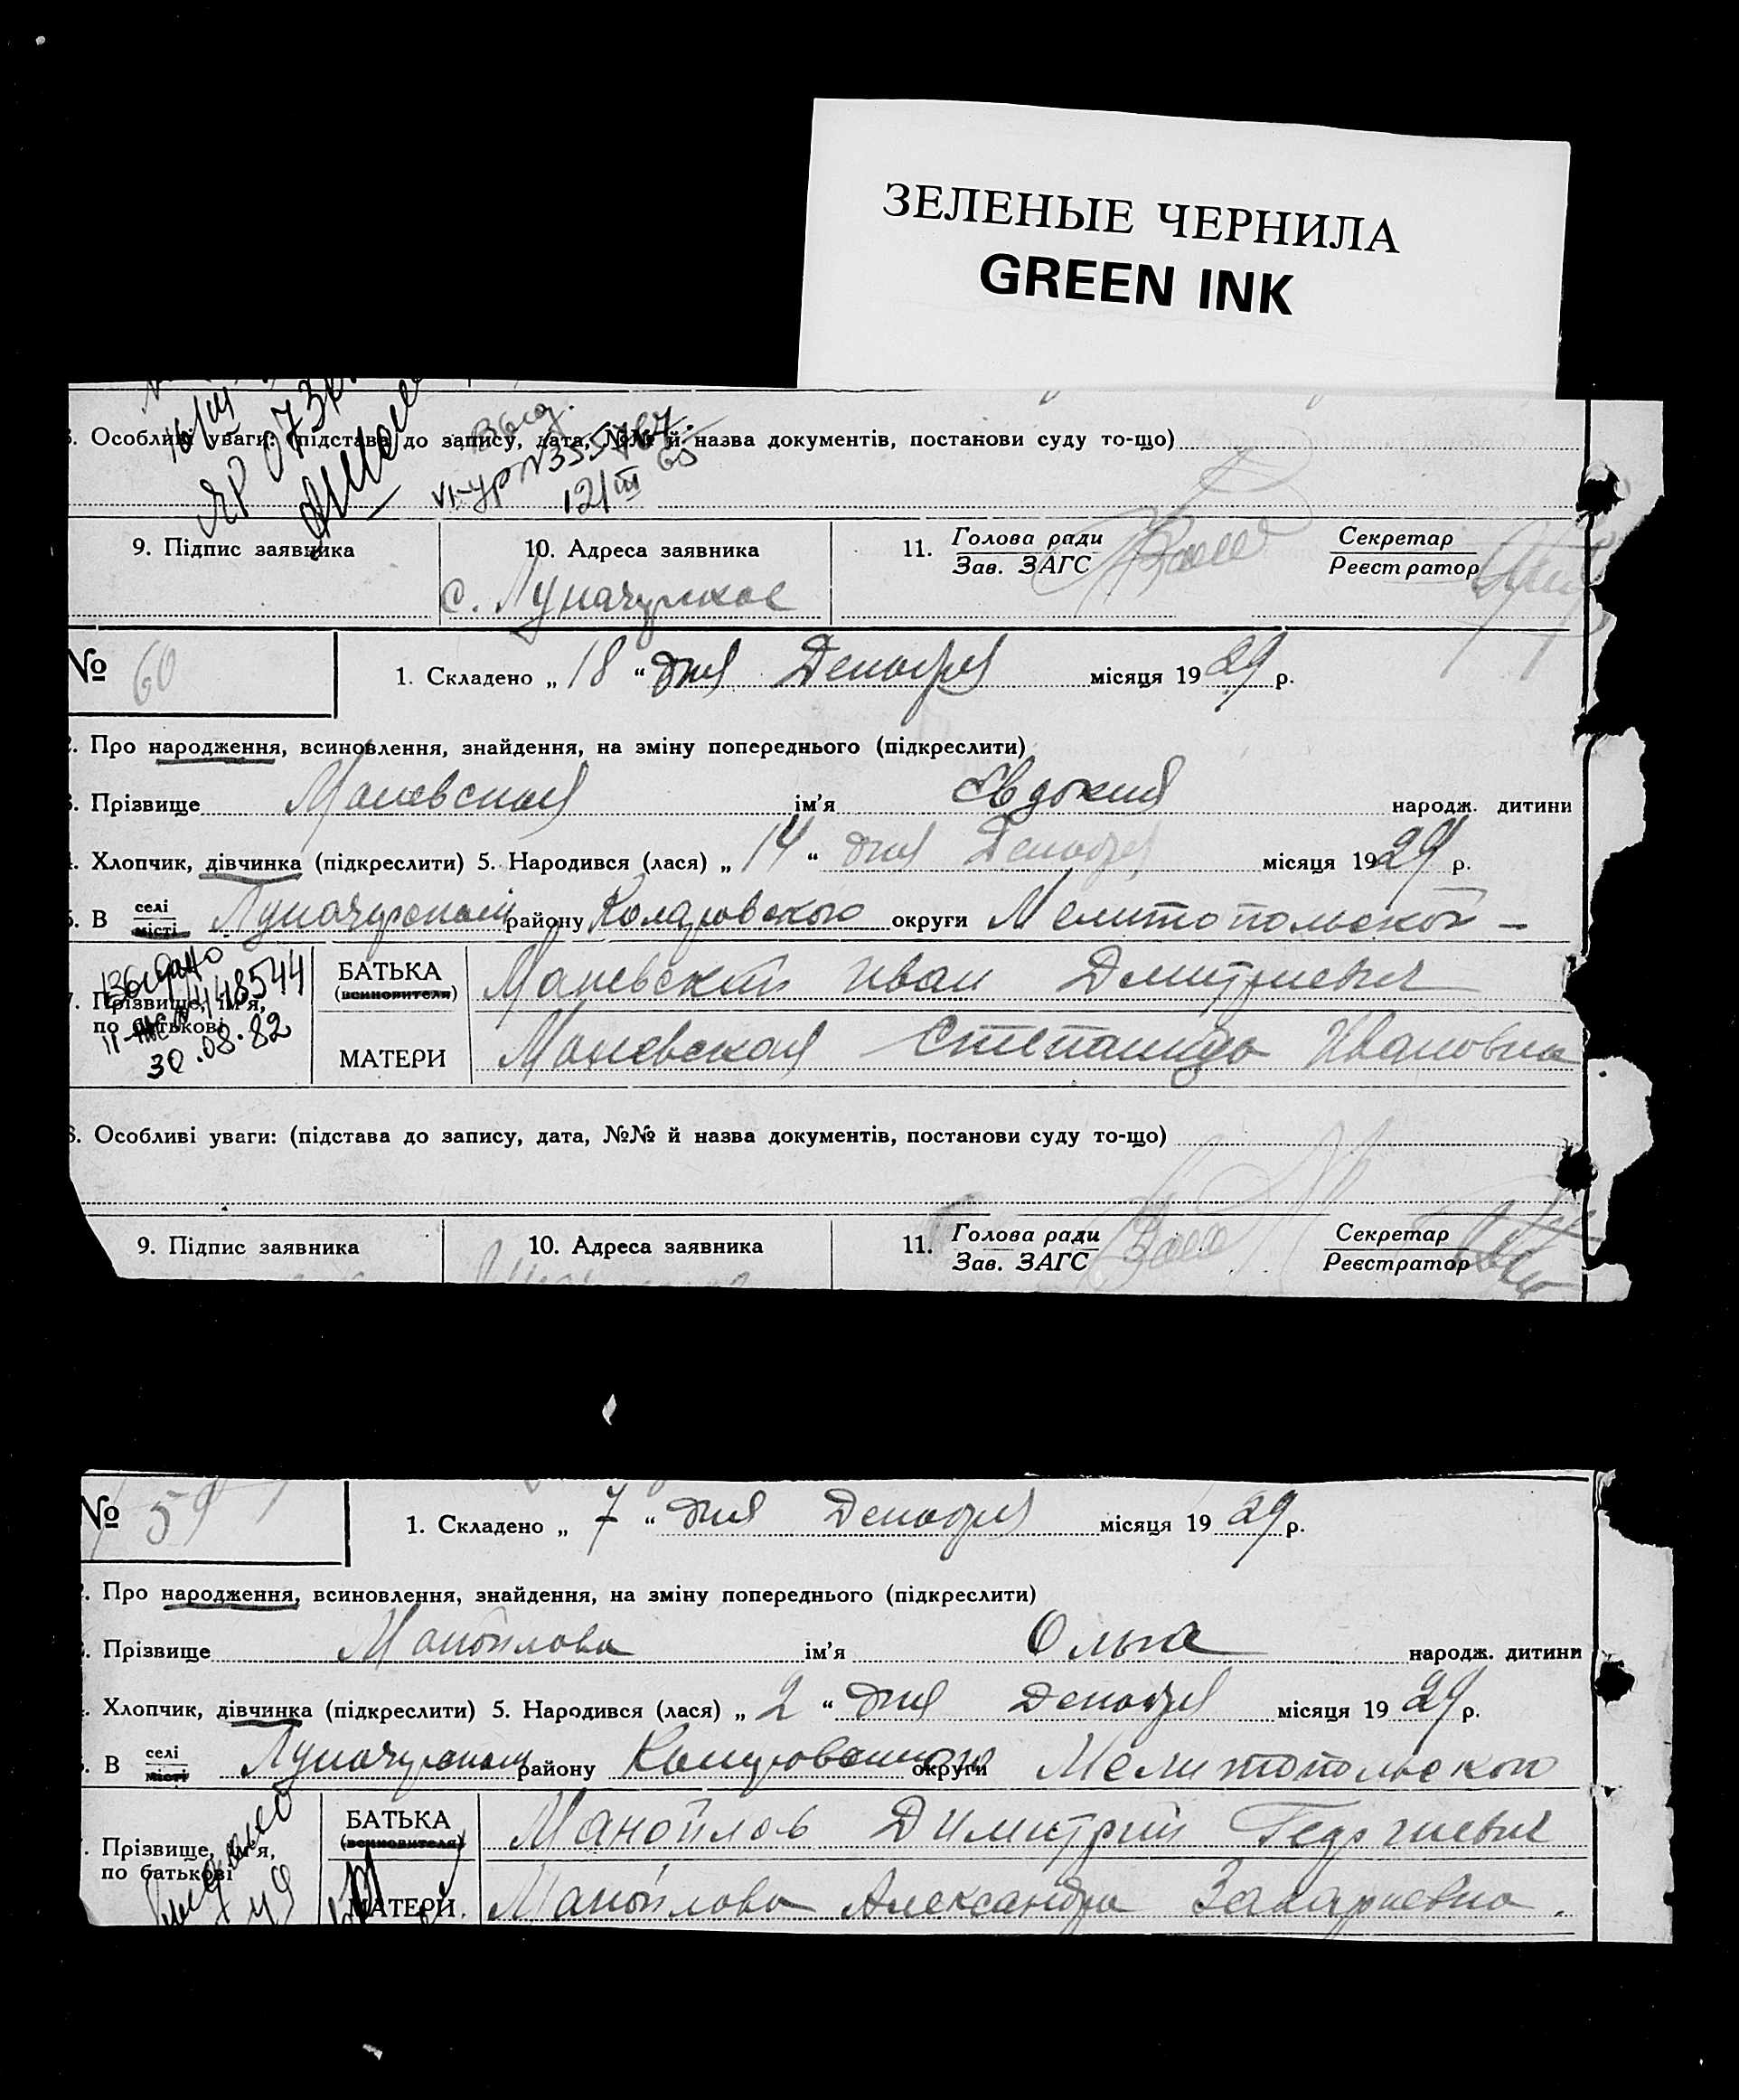 ЗЕЛЕНЫЕ ЧЕРНИЛА
GREEN INK
Особливі уваги: (підстава до запису, дата, №№ й назва документів, постанови суду то-що)
Выд.
12/III 65
9. Підпис заявника
10. Адреса заявника
11. Голова ради
Зав. ЗАГС
Секретар
Реєстратор
№ 60
1. Складено „ 18 “ дня Декабря місяця 19 29 р.
Про народження, всиновлення, знайдення, на зміну попереднього (підкреслити)
Прізвище Маневская ім’я Євдокия народж. дитини
Хлопчик, дівчинка (підкреслити) 5. Народився (лася) „ 14 “ дня Декабря місяця 19 29 р.
В селі
місті
району Коларовского округи Мелитопольской
Выдано
30.08.82
Прізвище, ім’я,
по батькові
БАТЬКА
(всиновителя)
Маневский Иван Дмитриевич
МАТЕРИ
Маневская Степанида Ивановна
Особливі уваги: (підстава до запису, дата, №№ й назва документів, постанови суду то-що)
9. Підпис заявника
10. Адреса заявника
11. Голова ради
Зав. ЗАГС
Секретар
Реєстратор
№ 59
1. Складено „ 7 “ дня Декабря місяця 19 29 р.
Про народження, всиновлення, знайдення, на зміну попереднього (підкреслити)
Прізвище Манойлова ім’я Ольга народж. дитини
Хлопчик, дівчинка (підкреслити) 5. Народився (лася) „ 2 “ дня Декабря місяця 19 29 р.
В селі
місті
району округи Мелитопольского
Прізвище, ім’я,
по батькові
БАТЬКА
(всиновителя)
Манойлов Димитрий Георгиевич
МАТЕРИ
Манойлова Александра Захариевна.